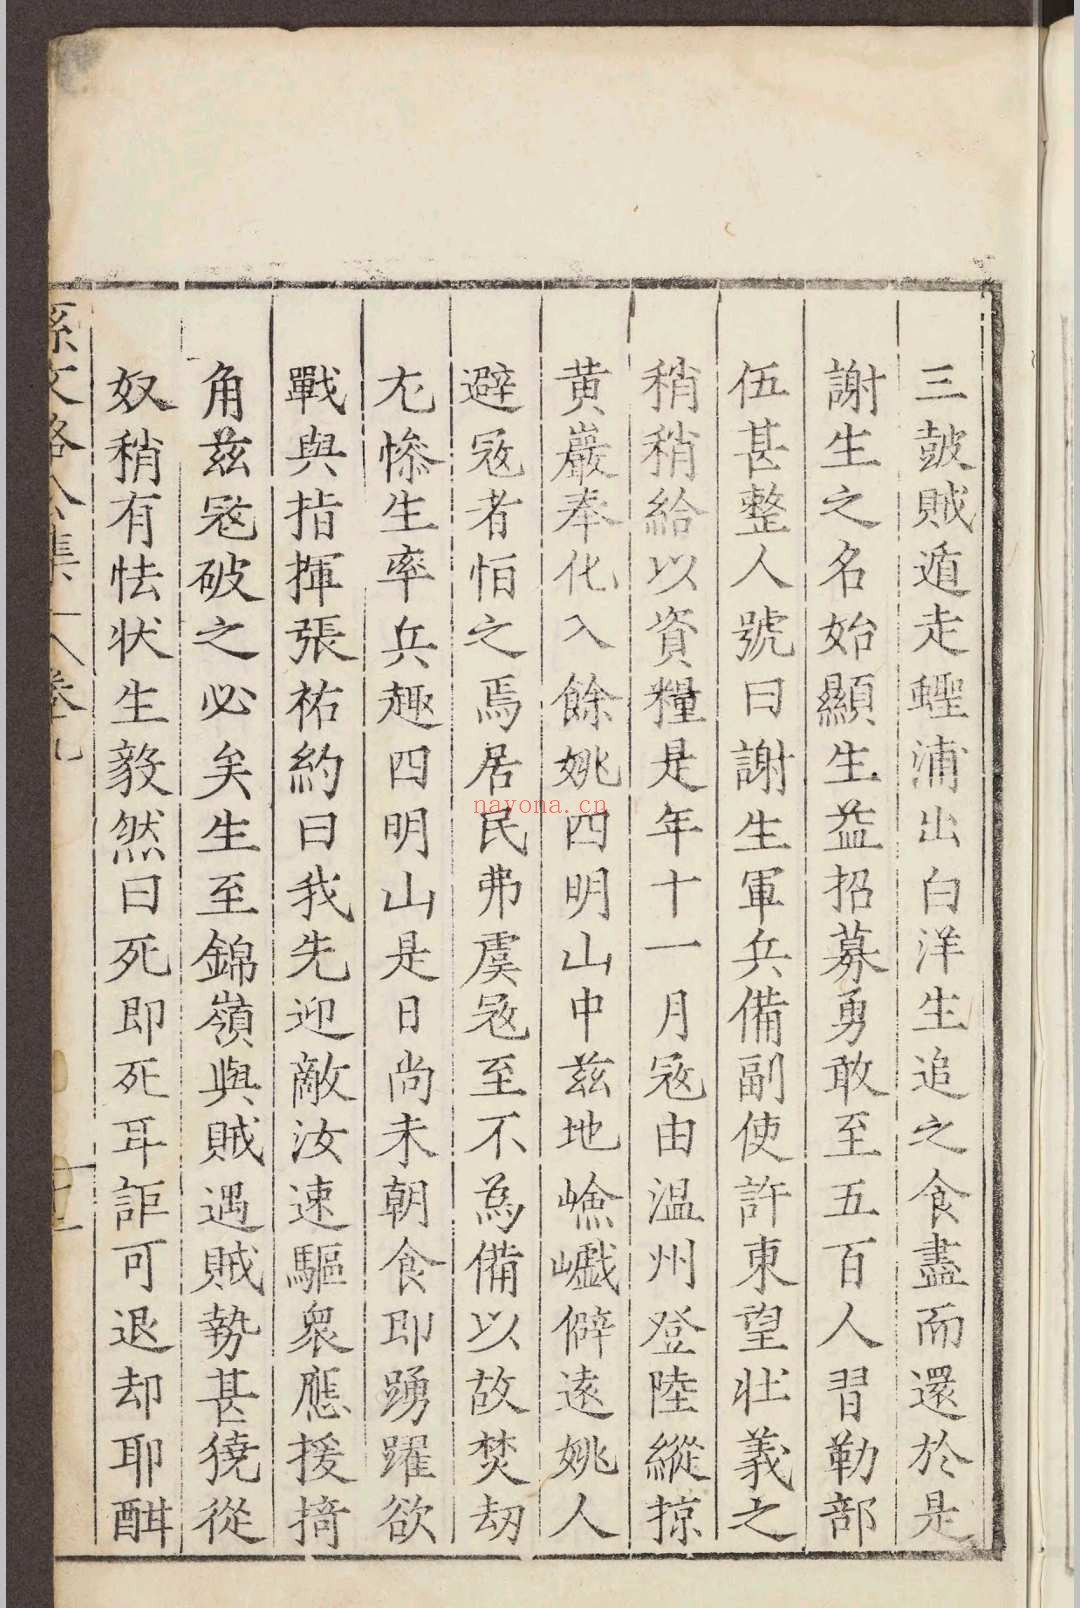 三皷賊遁走蟶浦出白洋生追之食盡而還於是
謝生之名始顯生益招募勇敢至五百人習勒部
伍甚整人號曰謝生軍兵備副使許東望壯義之
稍稍給以資糧是年十一月冦由温州登陸縱掠
黄巖奉化入餘姚四明山中兹地嶮巇僻逺姚人
避冦者怕之焉居民弗虞冦至不為備以故焚刼
尢慘生率兵趣四明山是日尚未朝食即踴躍欲
戰與指揮張祐約曰我先迎敵汝速驅衆應援掎
角兹冦破之必矣生至錦嶺與賊遇賊勢甚獟從
奴稍有怯状生毅然曰死即死耳詎可退却耶酣
孫文恪公集 卷九
nayona.cn